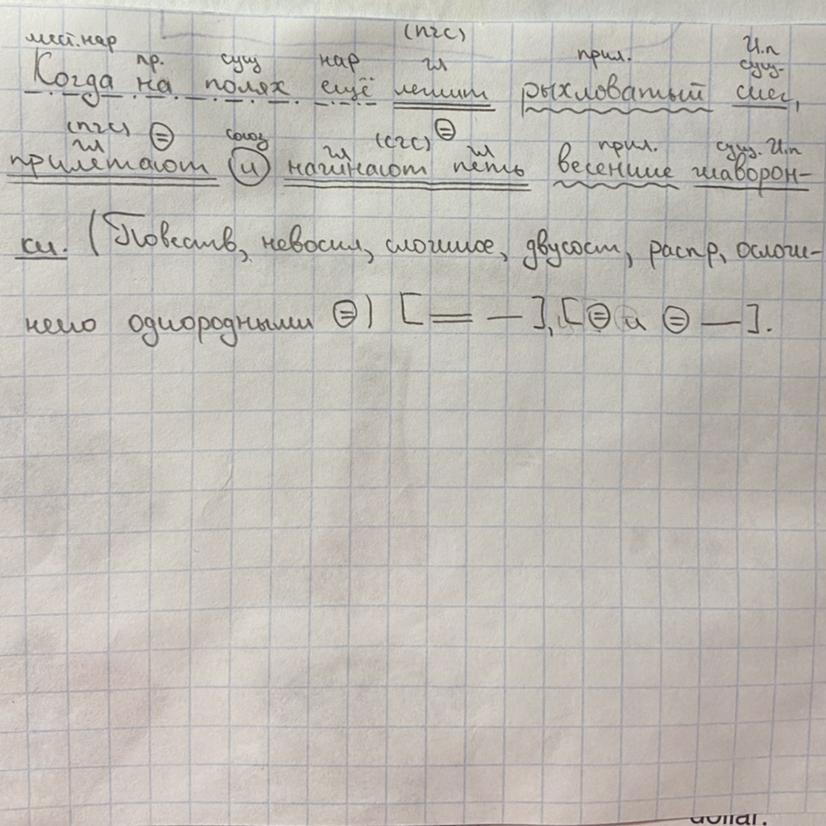 (пгс) И.п
мест.нар пр. сущ нар гл прил. сущ.
Когда на полях ещё лежит рыхловатый снег,
(пгс) = союз (сгс) =
гл гл гл прил. сущ. И.п
прилетают и начинают петь весенние жаворон-
ки. (Повеств, невоскл, сложное, двусост, распр, ослож-
нено однородными =) [= —], [= и = —].
dollar.